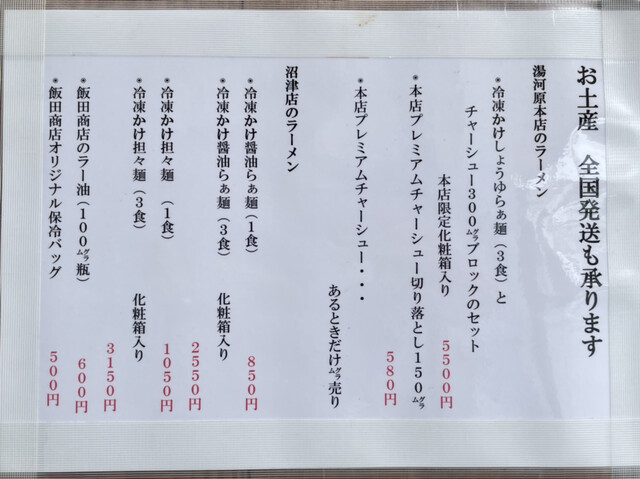 お土産　全国発送も承ります
湯河原本店のラーメン
＊冷凍かけしょうゆらぁ麺（３食）と
チャーシュー３００㌘ブロックのセット
本店限定化粧箱入り
５５００円
＊本店プレミアムチャーシュー切り落とし１５０㌘
５８０円
＊本店プレミアムチャーシュー・・・
あるときだけ㌘売り
沼津店のラーメン
＊冷凍かけ醤油らぁ麺（１食）
８５０円
＊冷凍かけ醤油らぁ麺（３食）　化粧箱入り
２５５０円
＊冷凍かけ担々麺　（１食）
１０５０円
＊冷凍かけ担々麺（３食）　化粧箱入り
３１５０円
＊飯田商店のラー油（１００㌘瓶）
６００円
＊飯田商店オリジナル保冷バッグ
５００円